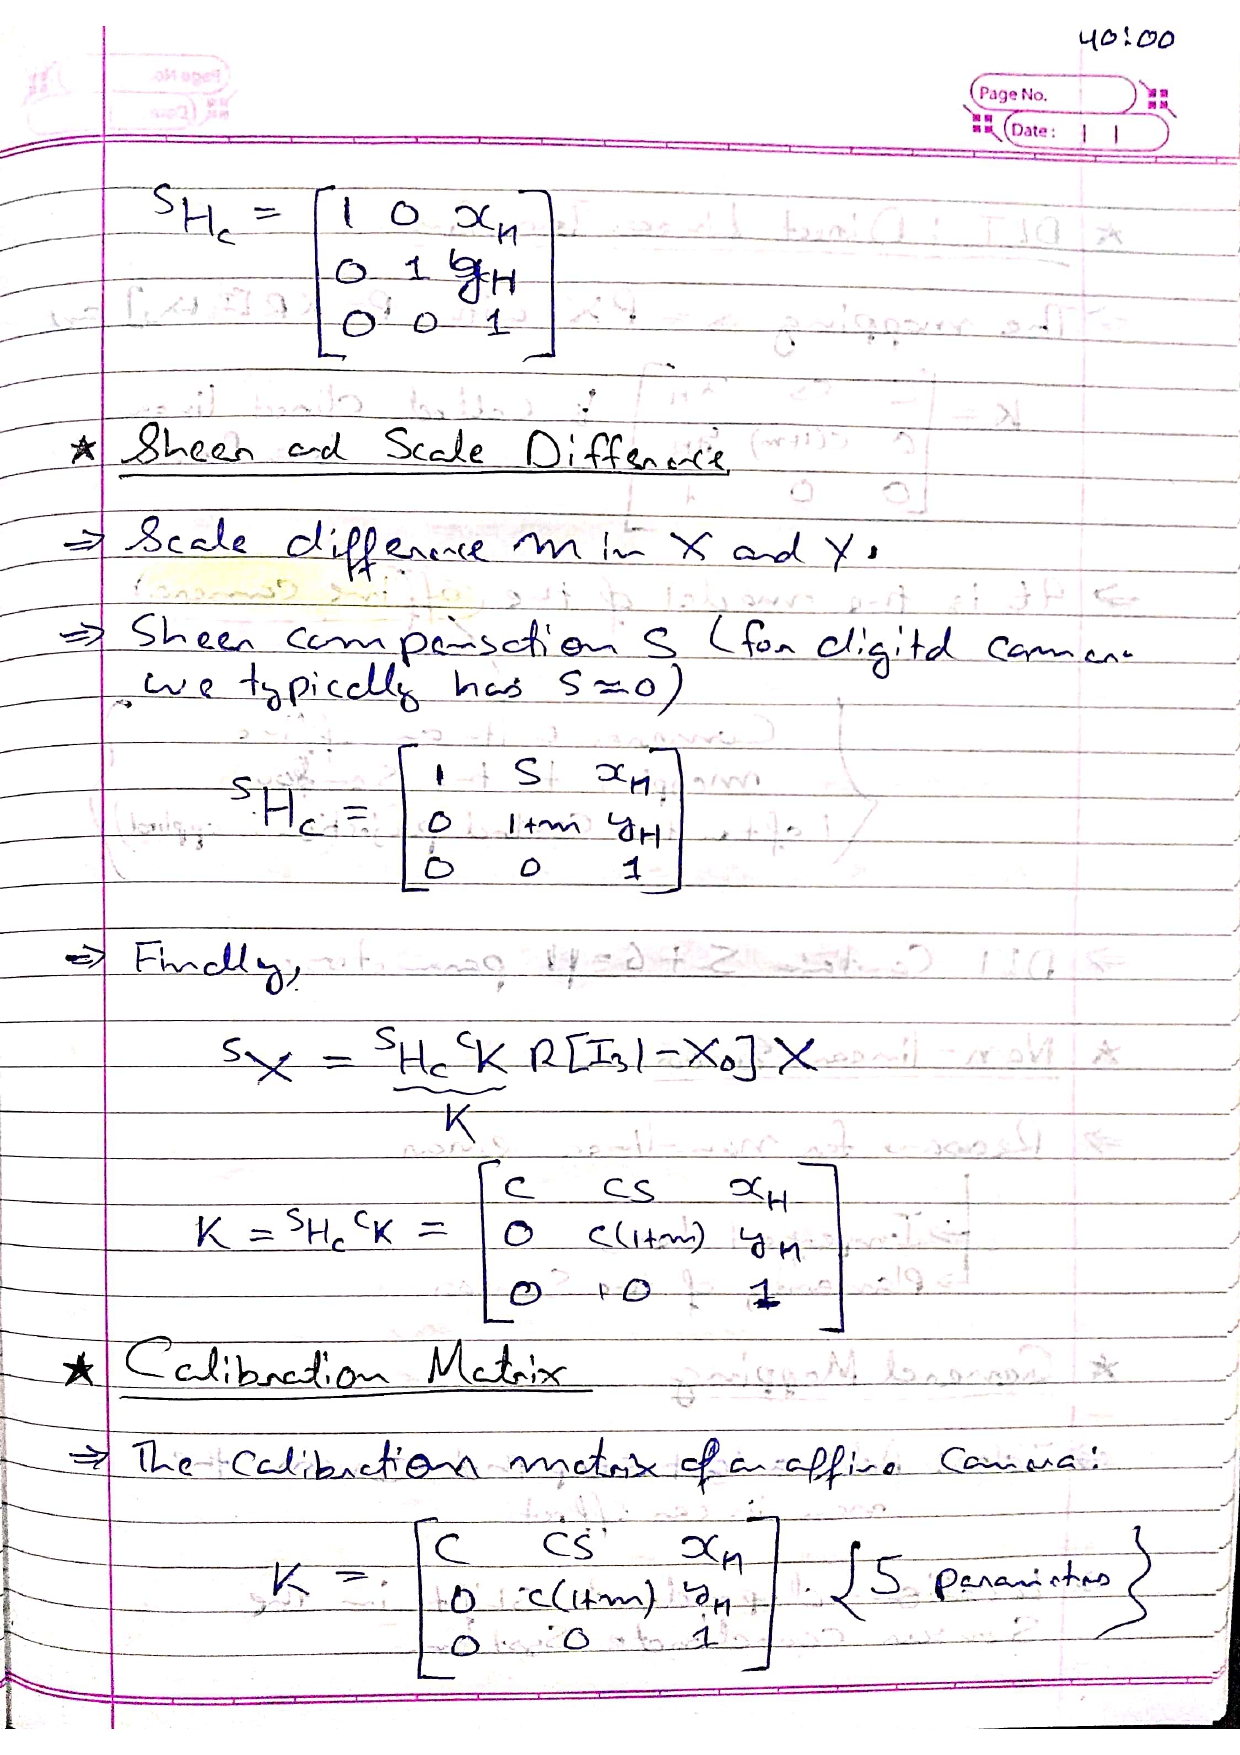 40:00
Page No.
Date:
ˢH_c = [ 1 0 x_H
0 1 y_H
0 0 1 ]
★ Sheer and Scale Difference
⇒ Scale difference m in X and Y.
⇒ Sheer compensation S (for digital camera
we typically has S≈0)
ˢH_c = [ 1 S x_H
0 1+m y_H
0 0 1 ]
⇒ Finally,
ˢX = ˢH_c ᶜK R[I₃|-X₀] X
K
K = ˢH_c ᶜK = [ c cs x_H
0 c(1+m) y_H
0 0 1 ]
★ Calibration Matrix
⇒ The calibration matrix of an affine camera:
K = [ c cs x_H
0 c(1+m) y_H
0 0 1 ] . {5 parameters}